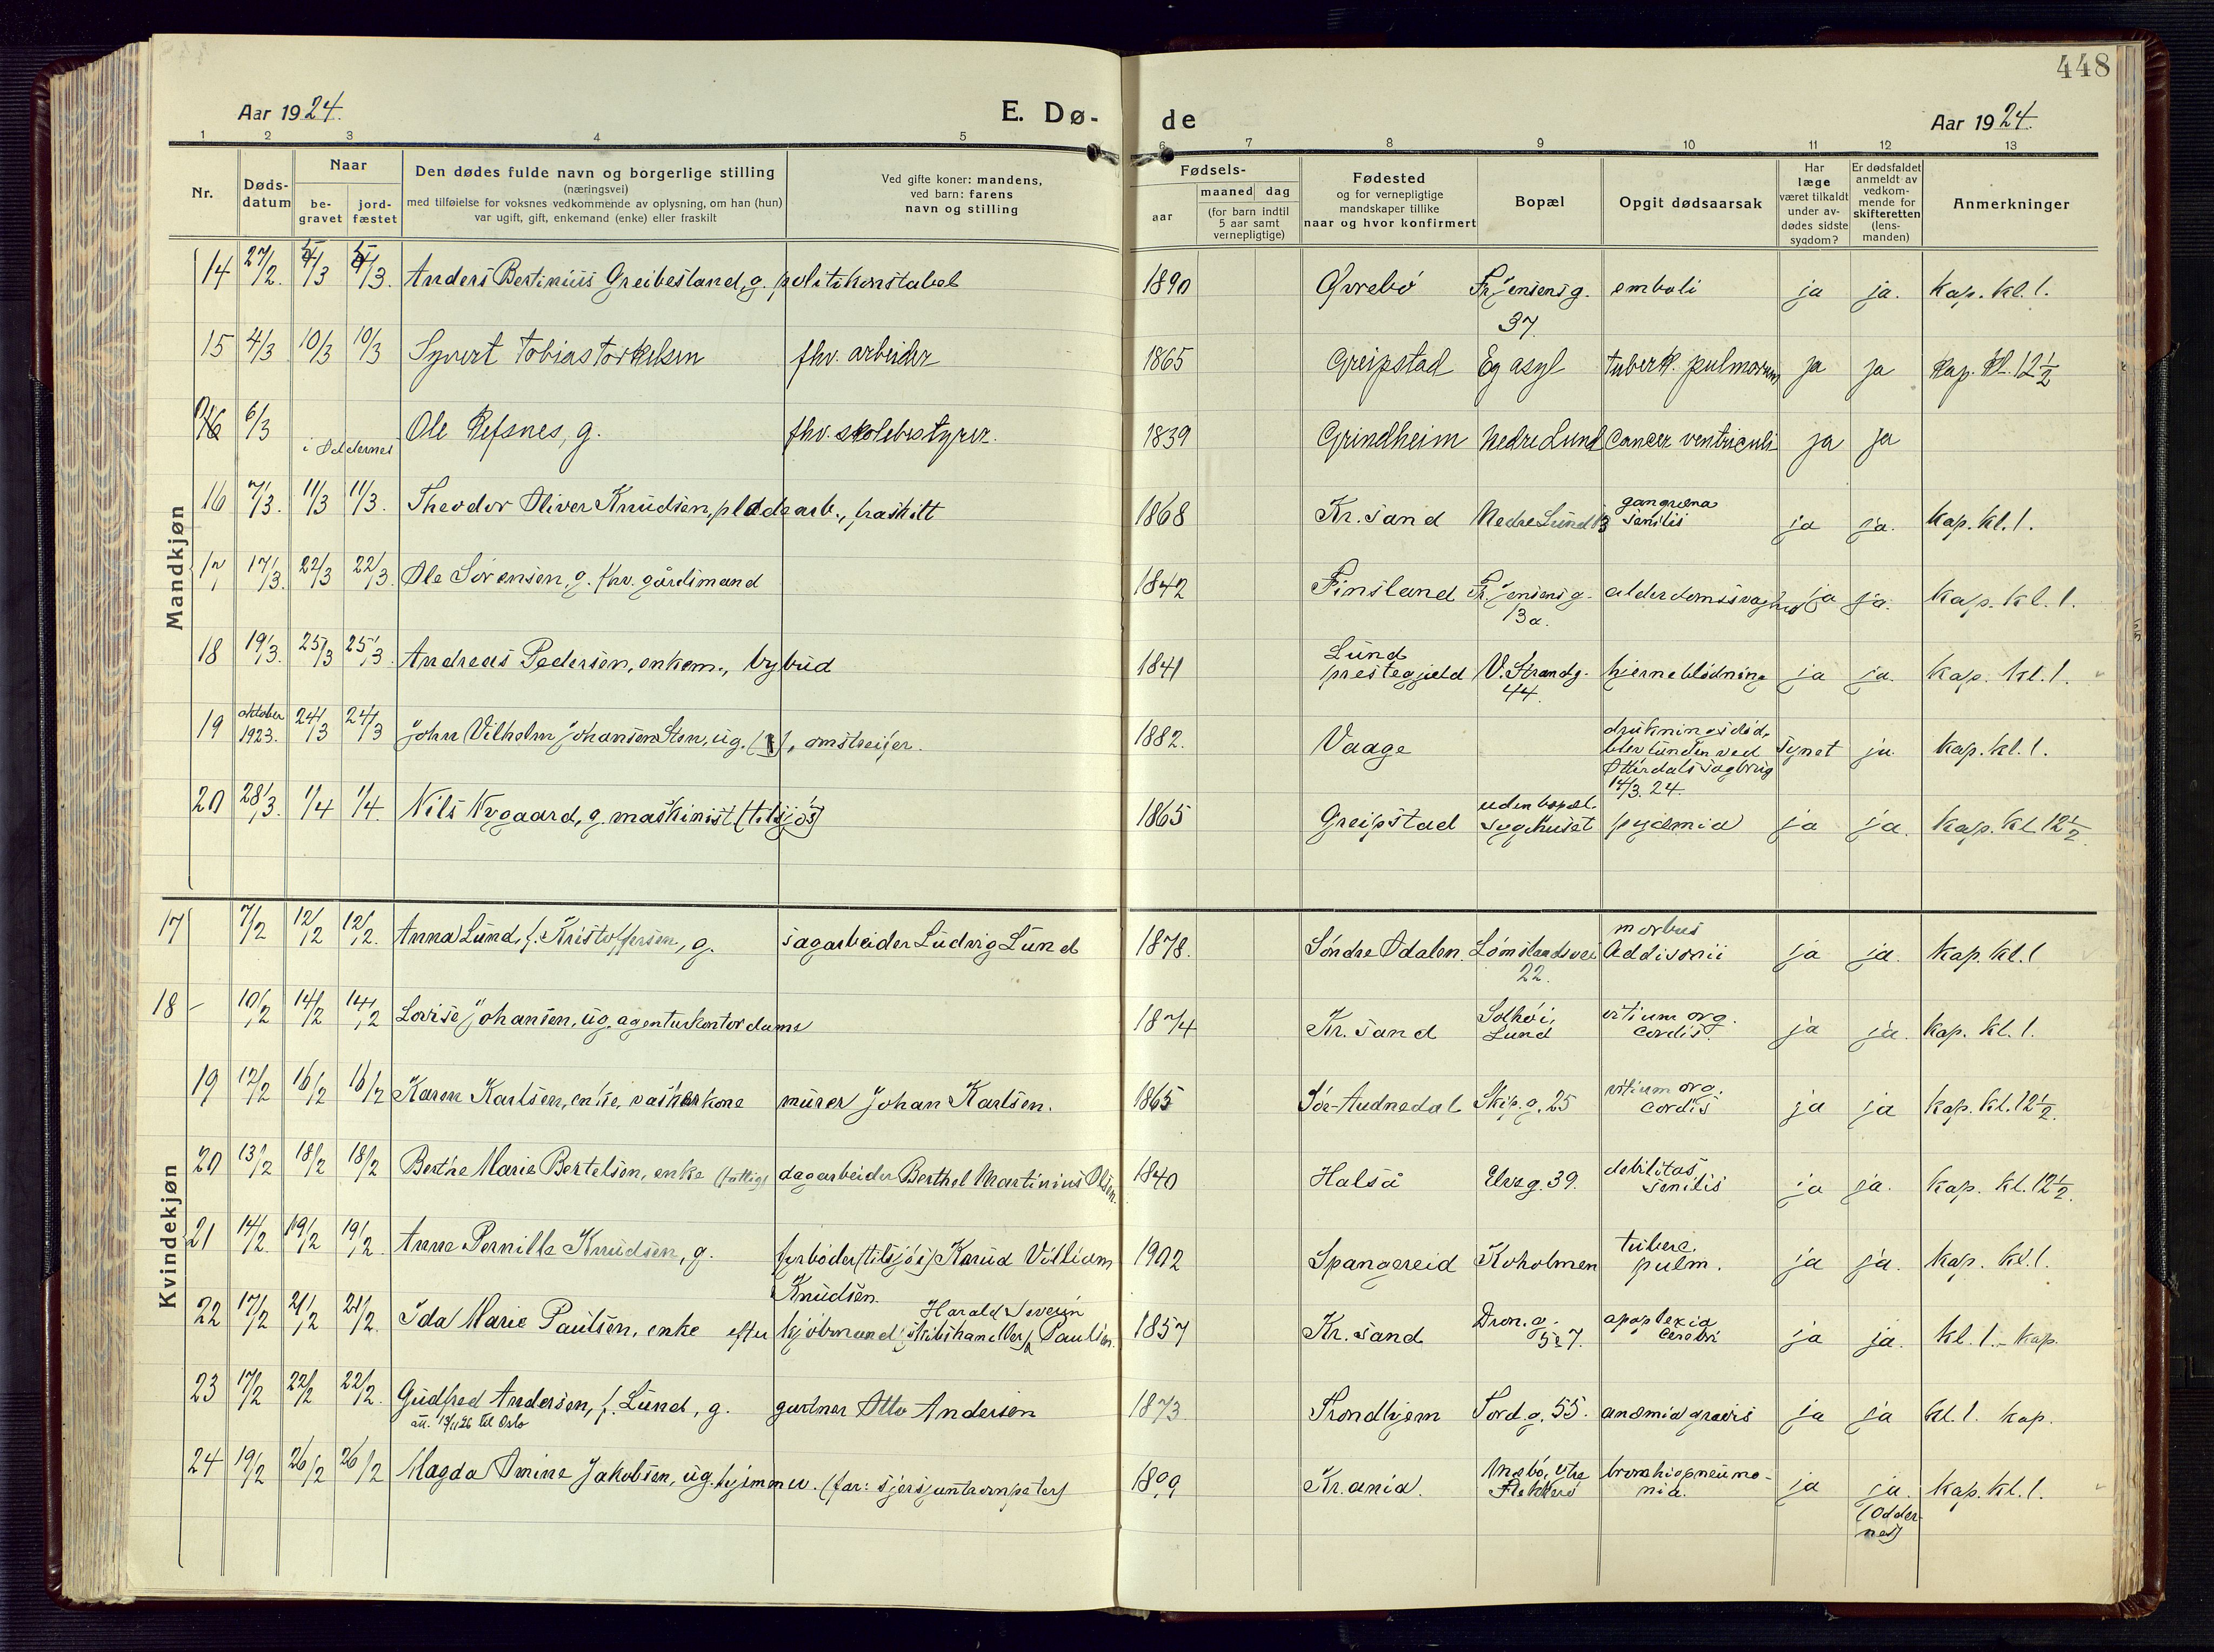 448
Aar 1924. E. Dø- de Aar 1924.
1 2 3 4 5 6 7 8 9 10 11 12 13
Nr. Døds-datum Naar be-gravet jord-fæstet Den dødes fulde navn og borgerlige stilling (næringsvei) med tilføielse for voksnes vedkommende av oplysning, om han (hun) var ugift, gift, enkemand (enke) eller fraskilt Ved gifte koner: mandens, ved barn: farens navn og stilling Fødsels- aar maaned dag (for barn indtil 5 aar samt vernepligtige) Fødested og for vernepligtige mandskaper tillike naar og hvor konfirmert Bopæl Opgit dødsaarsak Har læge været tilkaldt under av-dødes sidste sygdom? Er dødsfaldet anmeldt av vedkom-mende for skifteretten (lens-manden) Anmerkninger
Mandkjøn
14 27/2. 5/3 5/3. Anders Bertinius Greibesland, g. politikonstabel 1890 Øvrebö Fr. Jensensg. 37 emboli ja ja. Kap. kl. 1.
15 4/3 10/3 10/3 Syvert Tobias Torkelsen fhv. arbeider 1865 Greipstad Eg asyl tuberk. pulmorum ja ja Kap. kl. 12½
6/3 i Oddernes Ole Refsnes, g. fhv. skolebestyrer. 1839 Grindheim Nedre Lund Cancer ventriculi ja ja
16 7/3. 11/3 11/3. Theodor Oliver Knudsen, pladearb., fraskilt 1868 Kr.sand Nedre Lund 13 gangræna senilis ja ja. Kap. kl. 1.
17 17/3. 22/3 22/3. Ole Sörensen, g. fhv. gårdsmand 1842 Finsland Fr. Jensensg. 13a. alderdomssvaghed ja ja. Kap. kl. 1.
18 19/3. 25/3 25/3. Andreas Pedersen, enkem., bybud 1841 Lund prestegjeld V. Strandg. 44. hjerneblödning ja ja. Kap. kl. 1.
19 oktober 1923. 24/3 24/3 John Vilhelm Johansen Sten, ug. , omstreifer. 1882. Vaage drukningsdöd, blev funden ved Otterdals sagbrug 14/3.24. synet ja Kap. kl. 1.
20 28/3. 1/4 1/4. Nils Nygaard, g. maskinist (tilsjös) 1865 Greipstad uden bopæl. Sygehuset pyæmia ja ja. Kap. kl 12½.
Kvindekjøn
17 7/2 12/2 12/2. Anna Lund, f. Kristoffersen, g. sagarbeider Ludvig Lund 1878. Söndre Odalen. Lömslandsvei 22. morbus Addisonii ja ja. Kap. kl. 1
18 - 10/2 14/2 14/2 Lovise Johansen, ug. agenturkontordame 1874 Kr.sand Solhöi, Lund vitium org. cordis. ja ja. Kap. kl. 1.
19 12/2 16/2 16/2 Karen Karlsen, enke, vaskerkone murer Johan Karlsen. 1865 Sör-Audnedal Skip.g. 25 vitium org. cordis ja ja Kap. kl. 12½.
20 13/2 18/2 18/2 Berthe Marie Bertelsen, enke (fattig) dagarbeider Berthel Martinius Olsen. 1840 Halså Elveg. 39. debilitas senilis ja ja. Kap. kl. 12½.
21 14/2. 19/2 19/2. Anne Pernille Knudsen, g. fyrböder (tilsjös) Knud Villiam Knudsen. 1902 Spangereid Koholmen tuberc. pulm. ja ja. Kap. kl. 1.
22 17/2 21/2 21/2. Ida Marie Paulsen, enke efter kjöbmand (skibshandler) Harald Severin Paulsen. 1857 Kr.sand Dron.g. 57. apoplexia cerebri ja ja. kl. 1. - Kap.
23 17/2 22/2 22/2. Gudfred Andersen, f. Lund, g. gartner Otto Andersen 1873. Trondhjem Tord.g. 55. anæmia gravis ja ja kl. 1. kap.
att. 13/11 26 til Oslo
24 19/2 26/2 26/2 Magda Amine Jakobsen, ug. hjemmev. 1899 Kr.ania. ytre Flekkerö bronchiopneumonia. ja ja. (Oddernes) Kap. kl. 1.